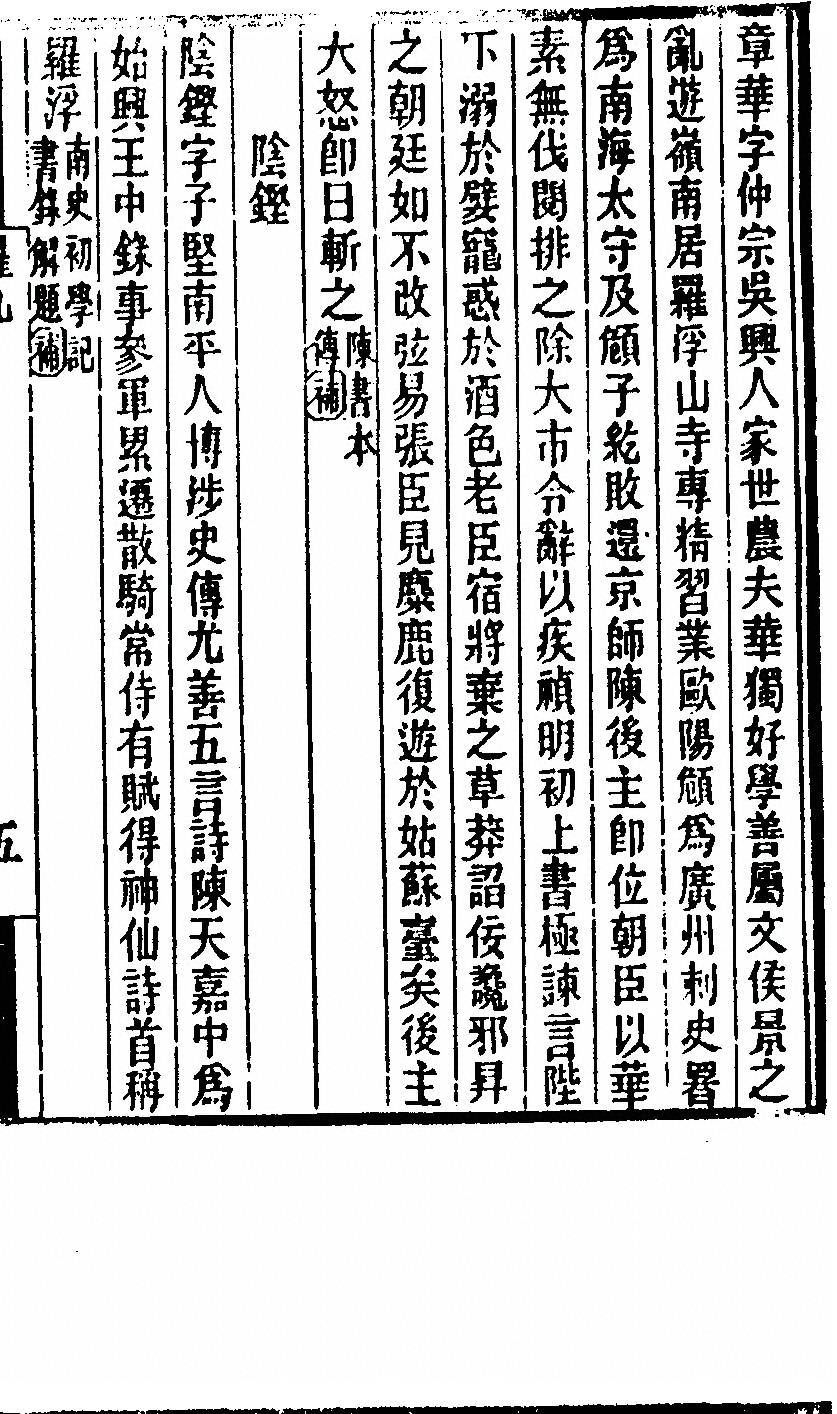 章華字仲宗吳興人家世農夫華獨好學善屬文侯景之
亂遊嶺南居羅浮山寺專精習業歐陽頠爲廣州刺史署
爲南海太守及頠子紇敗還京師陳後主卽位朝臣以華
素無伐閱排之除大市令辭以疾禎明初上書極諫言陛
下溺於嬖寵惑於酒色老臣宿將棄之草莽諂佞讒邪昇
之朝廷如不改弦易張臣見麋鹿復遊於姑蘇臺矣後主
大怒卽日斬之陳書本
傳補
陰鏗
陰鏗字子堅南平人博涉史傳尤善五言詩陳天嘉中爲
始興王中錄事參軍累遷散騎常侍有賦得神仙詩首稱
羅浮南史初學記
書錄解題補
五